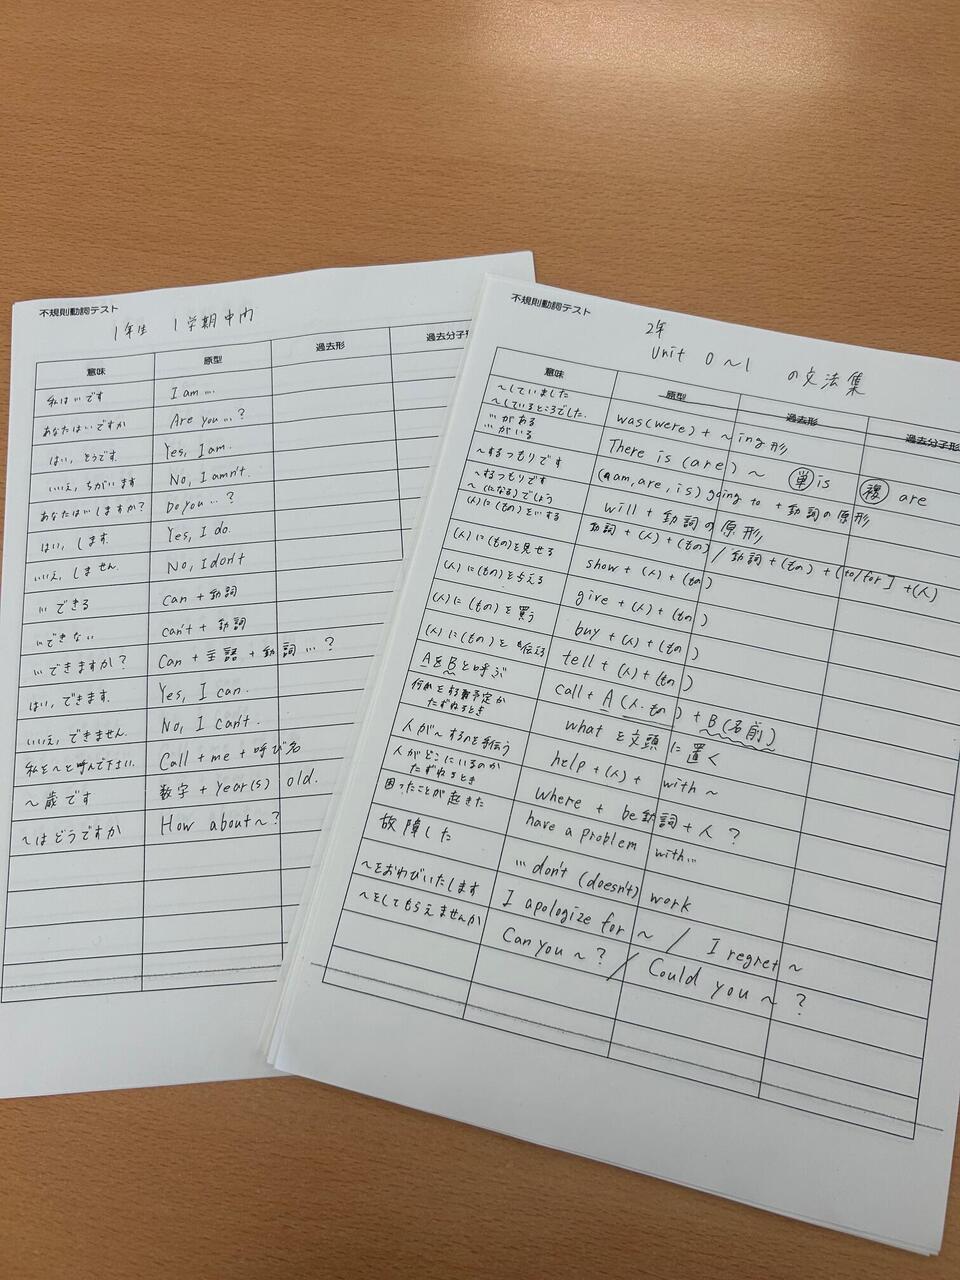 不規則動詞テスト
1年生 1学期中間
意味 原型 過去形 過去分子形
私は…です I am …
あなたは…ですか Are you …?
はい, そうです. Yes, I am.
いいえ, ちがいます No, I amn't.
あなたは…しますか? Do you …?
はい, します. Yes, I do.
いいえ, しません. No, I don't
…できる can + 動詞
…できない can't + 動詞
…できますか? Can + 主語 + 動詞 …?
はい, できます. Yes, I can.
いいえ, できません. No, I can't.
私を〜と呼んで下さい. Call + me + 呼び名
〜歳です 数字 + year(s) old.
〜はどうですか How about 〜?
不規則動詞テスト
2年
Unit 0 〜1 の文法集
意味 原型 過去形 過去分子形
〜していました
〜しているところでした. was(were) + 〜ing形
…がある
…がいる There is (are) 〜 単 is 複 are
〜するつもりです (am, are, is) going to + 動詞の原形
〜するつもりです
〜(になる)でしょう will + 動詞の原形
(人)に(もの)を…する 動詞 + (人) + (もの) / 動詞 + (もの) + (to/for] + (人)
(人)に(もの)を見せる show + (人) + (もの)
(人)に(もの)を与える give + (人) + (もの)
(人)に(もの)を買う buy + (人) + (もの)
(人)に(もの)を伝える tell + (人) + (もの)
AをBと呼ぶ call + A (人・もの) + B (名前)
何かをする予定か
たずねるとき what を文頭に置く
人が〜するのを手伝う help + (人) + with 〜
人がどこにいるのか
たずねるとき where + be動詞 + 人 ?
困ったことが起きた have a problem with…
故障した … don't (doesn't) work
〜をおわびいたします I apologize for 〜 / I regret 〜
〜をしてもらえませんか Can you 〜 ? / Could you 〜 ?